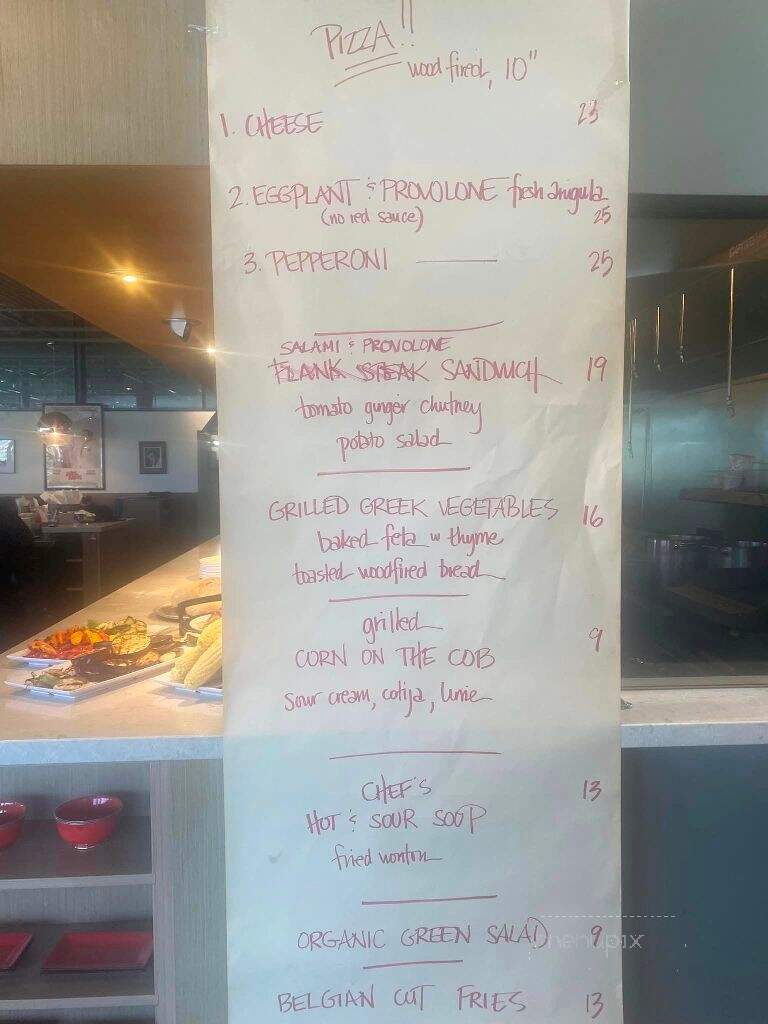 PIZZA!!
wood fired, 10"
1. CHEESE 23
2. EGGPLANT & PROVOLONE fresh arugula
(no red sauce) 25
3. PEPPERONI 25
SALAMI & PROVOLONE
FLANK STEAK SANDWICH 19
tomato ginger chutney
potato salad
GRILLED GREEK VEGETABLES 16
baked feta w thyme
toasted woodfired bread
grilled
CORN ON THE COB 9
sour cream, cotija, lime
CHEF'S 13
HOT & SOUR SOUP
fried wonton
ORGANIC GREEN SALAD 9
menupix
BELGIAN CUT FRIES 13